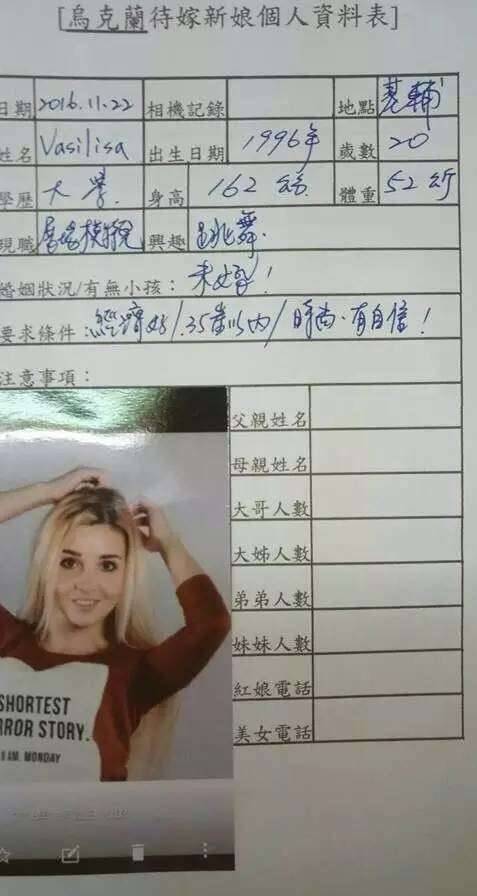 [烏克蘭待嫁新娘個人資料表]
日期 2016.11.22 相機記錄 地點 基輔
姓名 Vasilisa 出生日期 1996年 歲數 20
學歷 大學. 身高 162公分. 體重 52公斤
現職 興趣 跳舞.
婚姻狀況/有無小孩： 未婚！
要求條件 經濟好/.35歲以內/時尚、有自信！
注意事項：
父親姓名
母親姓名
大哥人數
大姊人數
弟弟人數
妹妹人數
紅娘電話
美女電話
SHORTEST
RROR STORY.
MONDAY